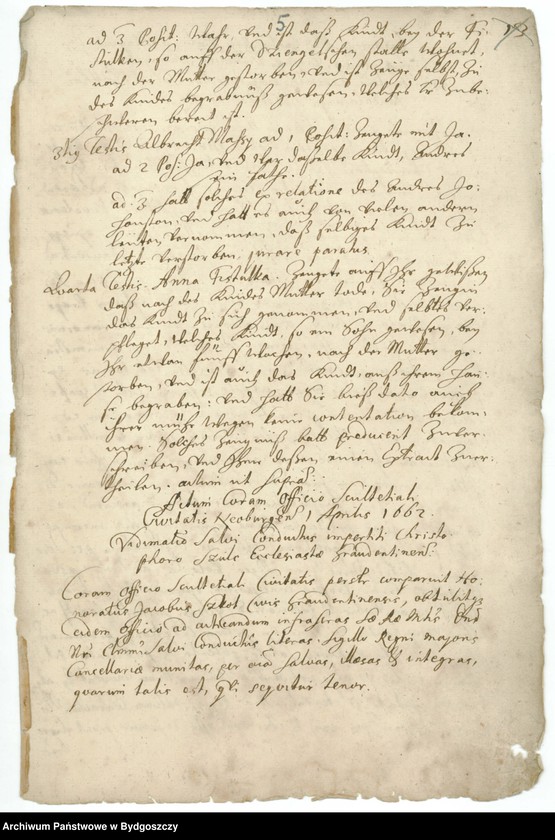 5
ad 3 Posit: Wahr, vnd ist daß Kindt, bey der Fi-
stulken, so auff der stalle Wohnet,
nach der Mutter gestorben, vnd ist Zeuge selbst, Zu
des Kindes begräbnüß gewesen, Welches Er Zube-
schweren bereit ist.
3tig Testis Albrecht Massy ad 1 Posit: Zeugete mit Ja.
ad 2 Pos: Ja, vnd War dasselbe Kindt, Andres
sein Pathe.
ad. 3 hatt solches ex relatione des Andres Jo-
hanson, vnd hatt es auch von vielen anderen
leuten vernommen, daß selbiges Kindt Zu
letzt verstorben, jurare paratus.
Quarta Testis. Anna Fistulka. Zeugete auff Ihr gewissen
daß nach des Kindes Mutter tode, Sie Zeugin
das Kindt Zu sich genommen, vnd selbtes ver-
pfleget, Welches Kindt, so ein Sohn gewesen, bey
Ihr etwan fünff Wochen, nach der Mutter ge-
storben, vnd ist auch das Kindt, auß ihrem Hau-
se begraben: vnd hatt Sie bieß dato auch
ihrer mühe Wegen keine contentation bekom-
men. Solches Zeugnüß batt producent Zuver-
schreiben, vnd Ihme dessen einen Extract Zuer-
theilen. actum ut supra.
Actum Coram Officio Scultetiali
Civitatis Neoburgen 1 Aprilis 1662.
Vidimatio Salvi Conductus impertiti Christo-
phoro Szulc Ecclesiastæ Graudentinen.
Coram Officio Scultetiali Civitatis comparuit Ho-
noratus Jacobus Szkot Civis Graudentinensis, obtulitq3
eidem Officio ad acticandum infrascriptas Sæ Ræ Mtis Dni
Nri Clemmi Salvi Conductus literas, sigillo Regni majoris
Cancellariæ munitas, per oia salvas, illæsas & integras,
quarum talis est, qui sequitur tenor.
Archiwum Państwowe w Bydgoszczy